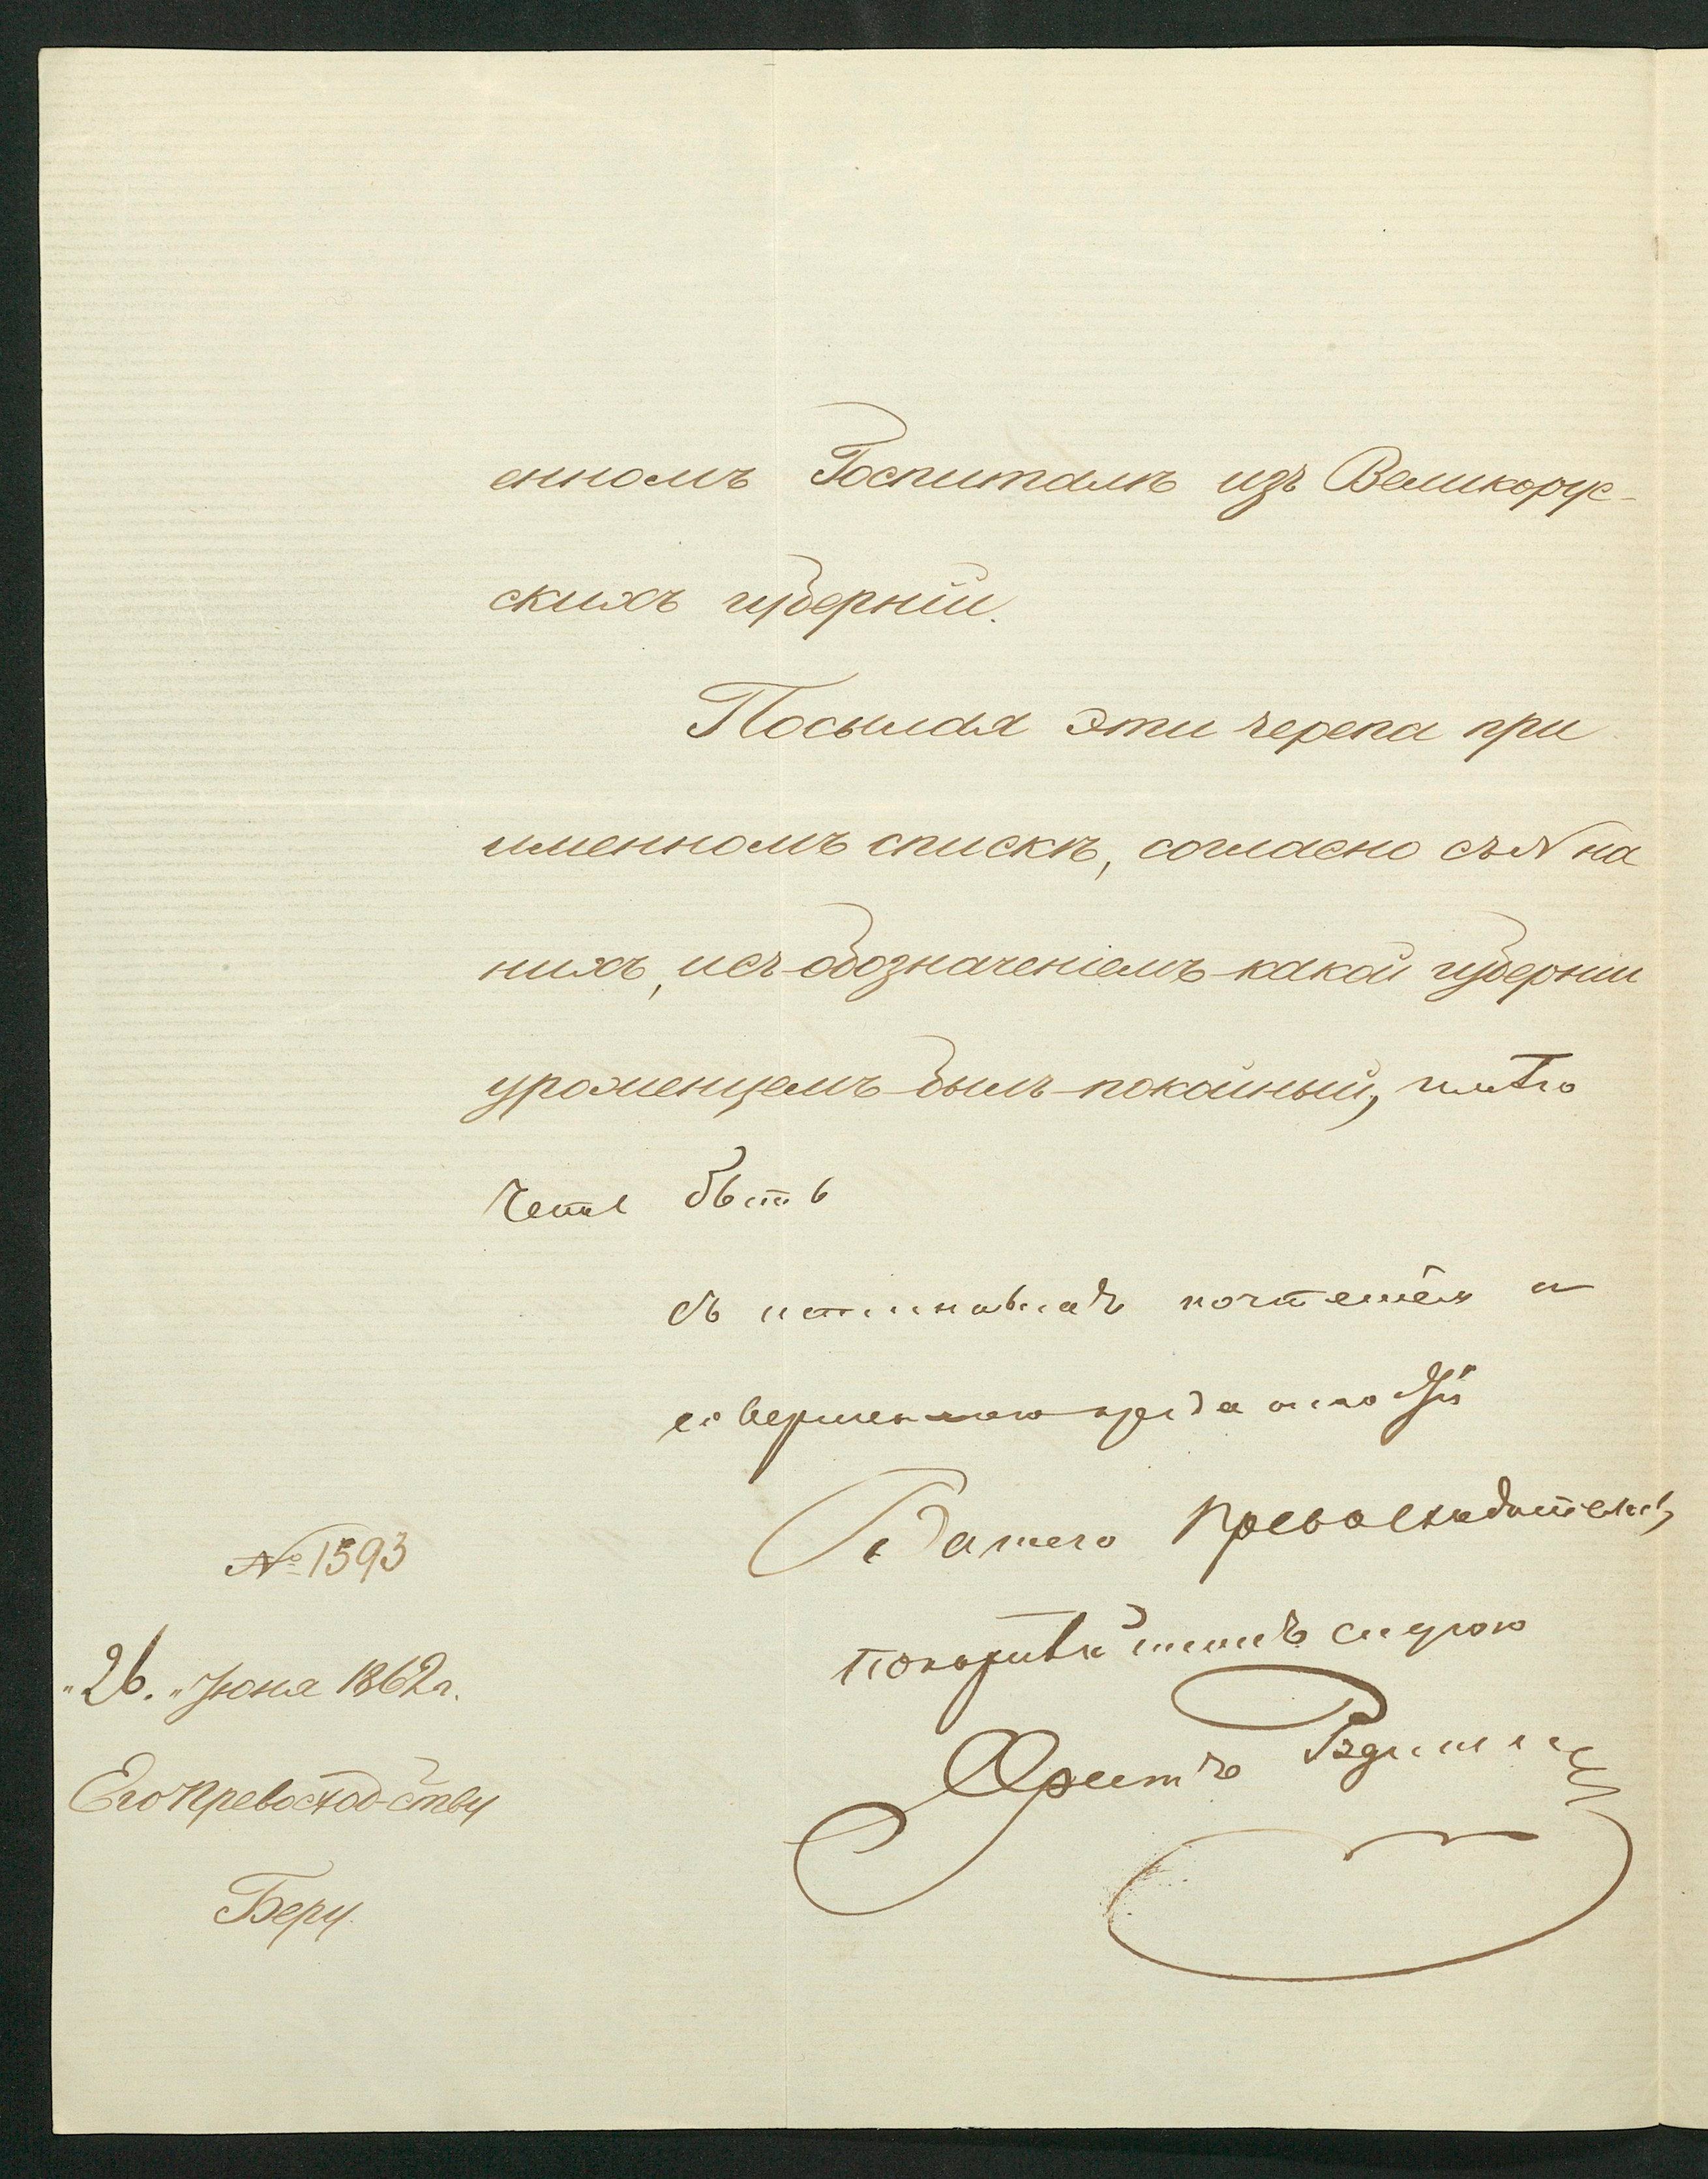 енномъ Госпиталѣ изъ Великорус-
скихъ губерній.
Посылая эти черепа при
именномъ спискѣ, согласно съ N на
нихъ, и съ обозначеніемъ какой губерніи
уроженцемъ былъ покойный, имѣю
честь быть
съ истиннымъ почтеніемъ и
совершенною преданностію
Вашего Превосходительства
покорнѣйшимъ слугою
Христ
№ 1593
"26." Іюня 1862 г.
Его Превосход-ству
Беру.